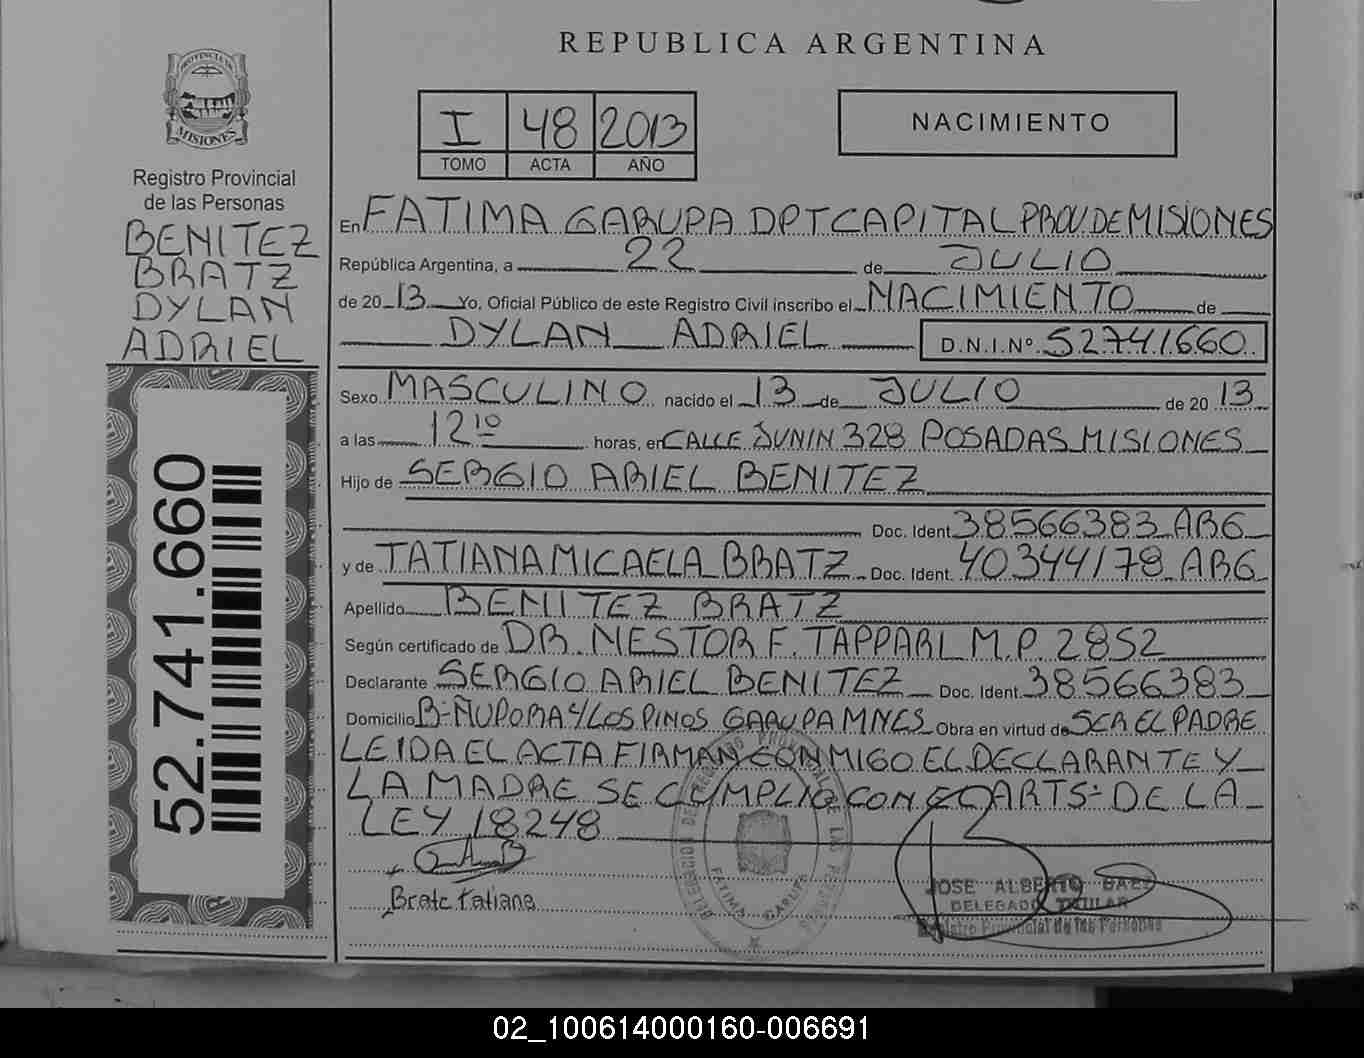 REPUBLICA ARGENTINA
PROVINCIA DE
MISIONES
I 48 2013
TOMO ACTA AÑO
NACIMIENTO
Registro Provincial
de las Personas
BENITEZ
BRATZ
DYLAN
ADRIEL
52.741.660
En FATIMA GARUPA DPT CAPITAL PROV DE MISIONES
República Argentina, a 22 de JULIO
de 20 13 Yo, Oficial Público de este Registro Civil inscribo el NACIMIENTO de
DYLAN ADRIEL D.N.I.Nº 52741660
Sexo MASCULINO nacido el 13 de JULIO de 20 13
a las 12 10 horas, en CALLE JUNIN 328 POSADAS MISIONES
Hijo de SERGIO ARIEL BENITEZ
Doc. Ident. 38566383 ARG
y de TATIANA MICAELA BRATZ Doc. Ident. 40344178 ARG
Apellido BENITEZ BRATZ
Según certificado de DR. NESTOR F. TAPPARI M.P. 2852
Declarante SERGIO ARIEL BENITEZ Doc. Ident. 38566383
Domicilio Bº ÑUPORA Y LOS PINOS GARUPA MNES Obra en virtud de SER EL PADRE
LEIDA EL ACTA FIRMAN CONMIGO EL DECLARANTE Y
LA MADRE SE CUMPLIO CON ARTS DE LA
LEY 18248
Bratz tatiana
FATIMA GARUPA
JOSE ALBERTO BAEZ
DELEGADO TITULAR
Registro Provincial de las Personas
02_100614000160-006691